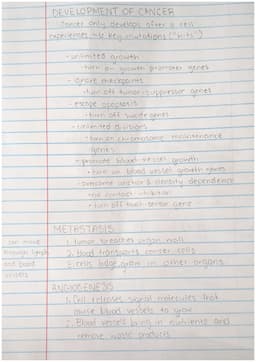 DEVELOPMENT OF CANCER
Cancer only develops after a cell
experiences key mutations ("hits")
- unlimited growth
- turn on growth promoter genes
- ignore checkpoints
- turn off tumor suppressor genes
- escape apoptosis
- turn off suicide genes
- unlimited divisions
- turn on chromosome maintenance
genes
- promote blood vessel growth
- turn on blood vessel growth genes
- overcome anchor & density dependence
- turn off touch sensor gene
METASTASIS
can move
through lymph
and blood
vessels
1. tumor breaches organ wall
2. blood transports cancer cells
3. cells lodge, grow in other organs
ANGIOGENESIS
1. Cell releases signal molecules that
cause blood vessels to grow
2. Blood vessels bring in nutrients and
remove waste products